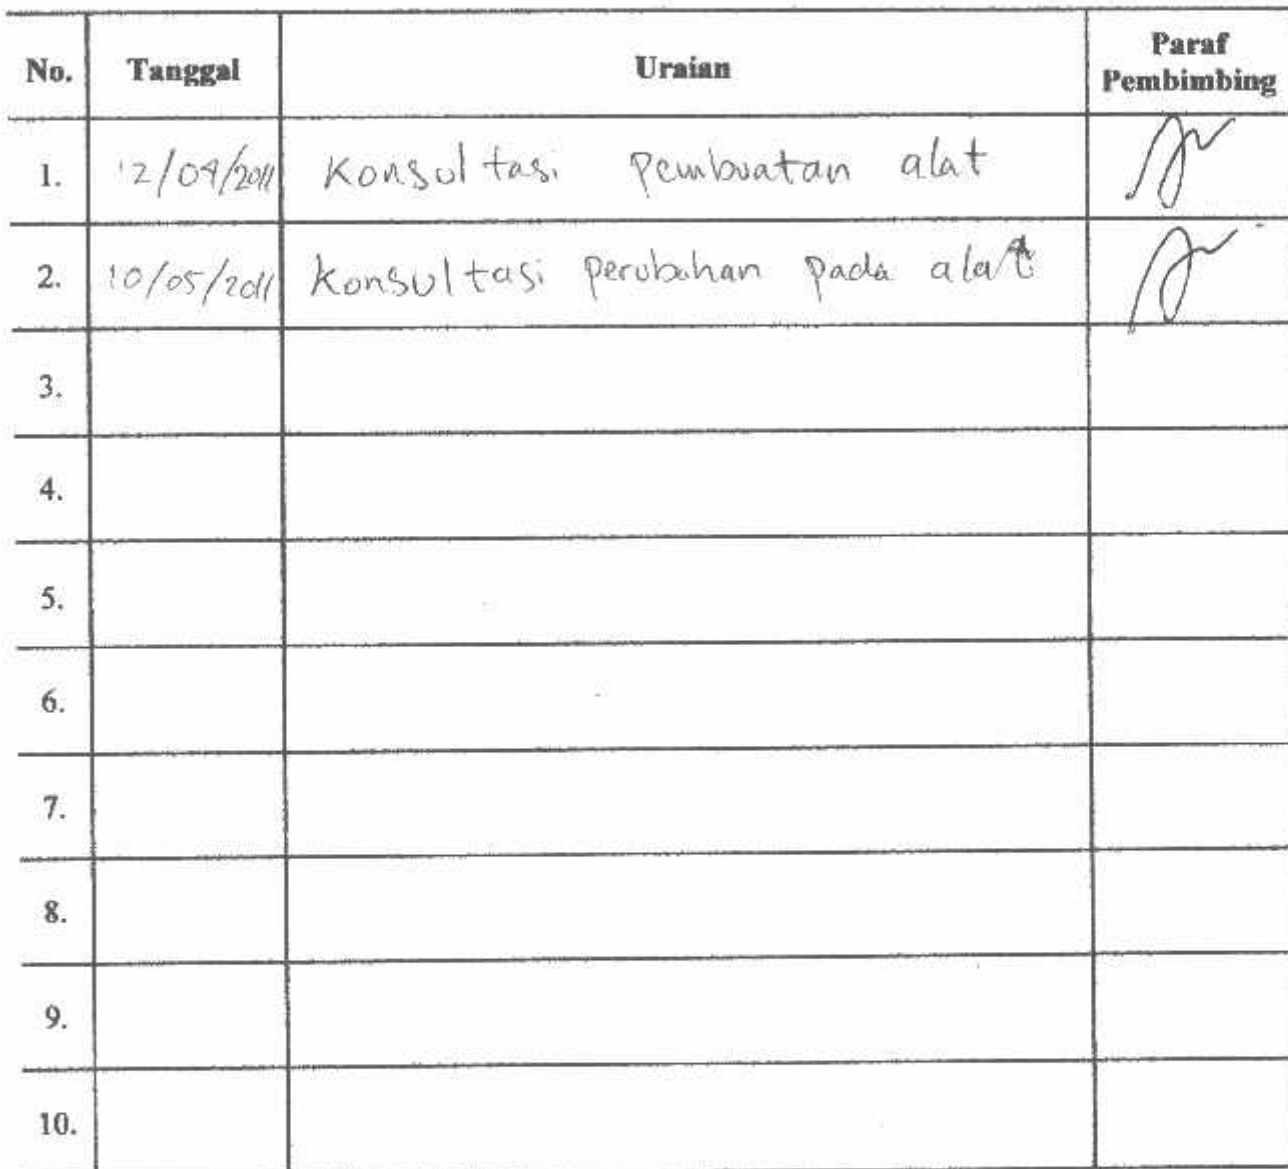 No. Tanggal Uraian Paraf Pembimbing
1. 12/04/2011 Konsultasi pembuatan alat
2. 10/05/2011 Konsultasi perubahan pada alat
3.
4.
5.
6.
7.
8.
9.
10.